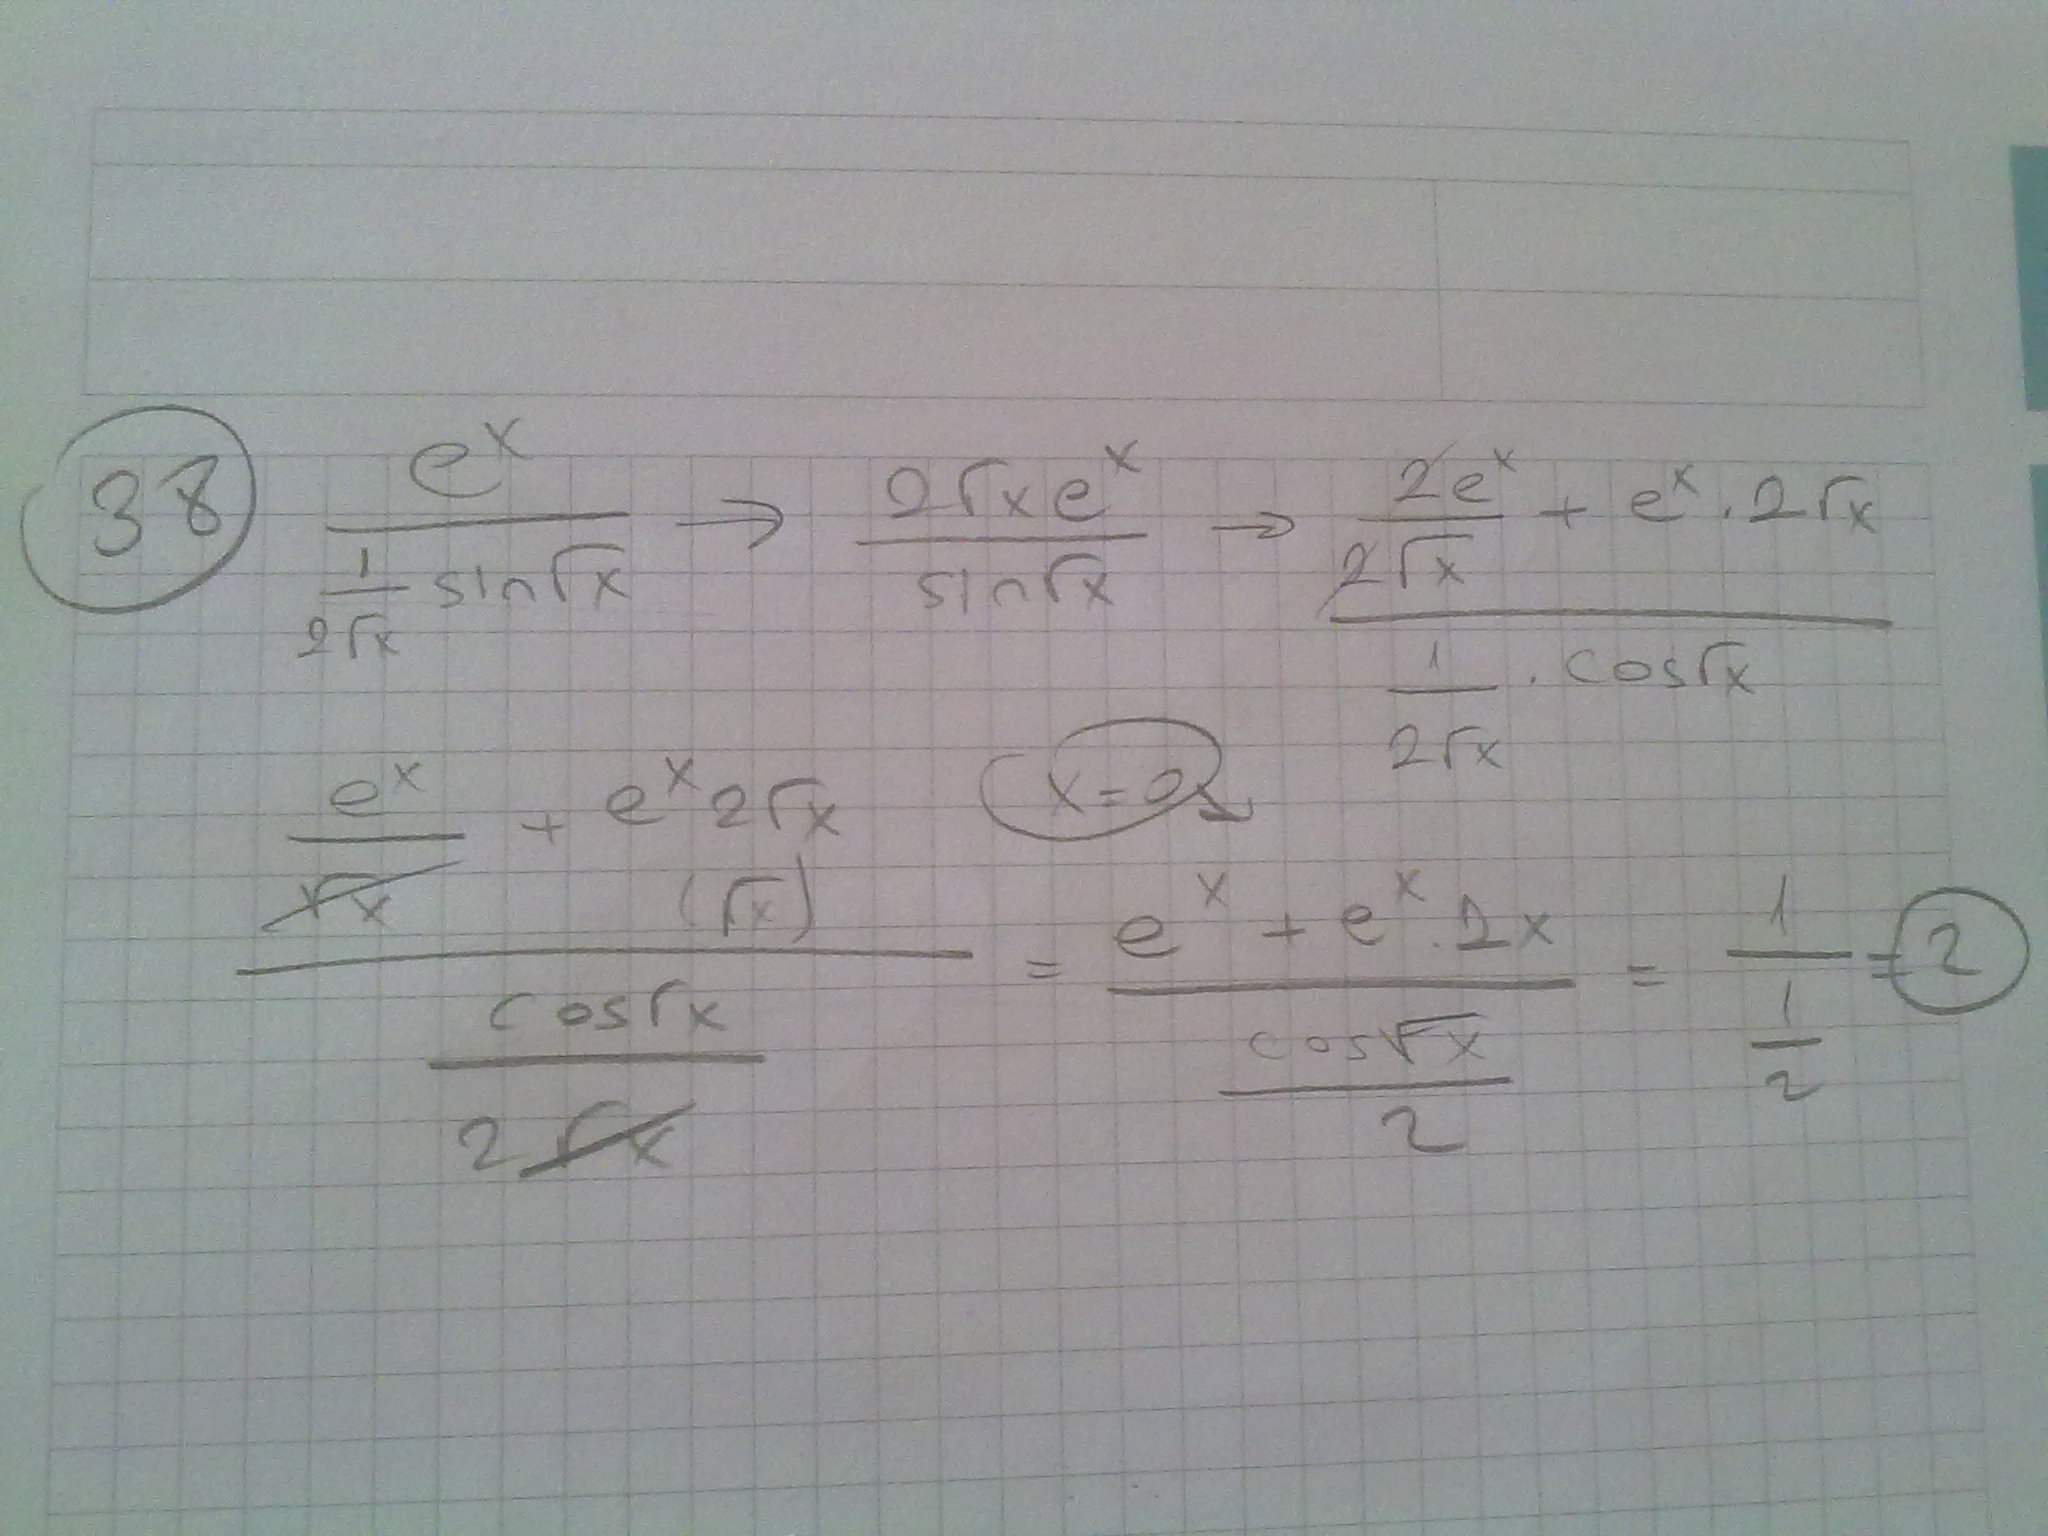 38 e^x / (1/(2√x) sin√x) → 2√x e^x / sin√x → (2e^x/(2√x) + e^x . 2√x) / (1/(2√x) . cos√x)
x=0
(e^x/√x + e^x 2√x (√x)) / (cos√x/(2√x)) = (e^x + e^x . 2x) / (cos√x/2) = 1/(1/2) = 2